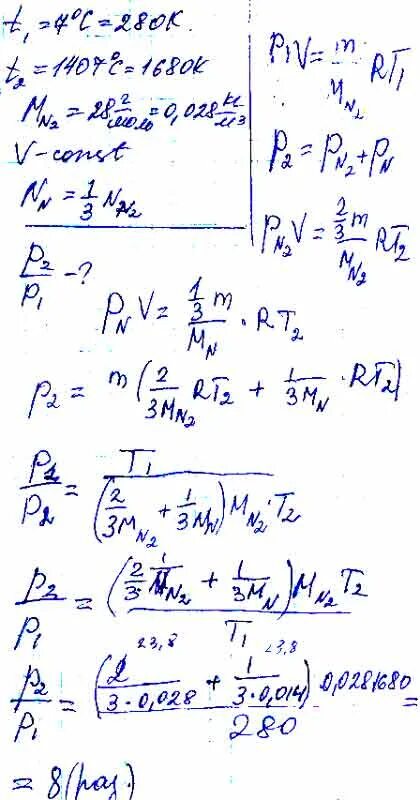 t₁ = 7°C = 280K.
t₂ = 1407°C = 1680K
M_N₂ = 28 г/моль = 0,028 кг/м3
V - const
N_N = 1/3 N_N₂
p₂/p₁ - ?
p₁V = m/M_N₂ RT₁
p₂ = p_N₂ + p_N
p_N₂ V = (2/3 m)/M_N₂ RT₂
p_N V = (1/3 m)/M_N · RT₂
p₂ = m (2/3M_N₂ RT₂ + 1/3M_N · RT₂)
p₁/p₂ = T₁/((2/3M_N₂ + 1/3M_N) M_N₂ · T₂)
p₂/p₁ = ((2/3 1/M_N₂ + 1/3M_N) M_N₂ T₂)/T₁
23,8 23,8
p₂/p₁ = ((2/3·0,028 + 1/3·0,014) 0,028·1680)/280 =
= 8 (раз.)